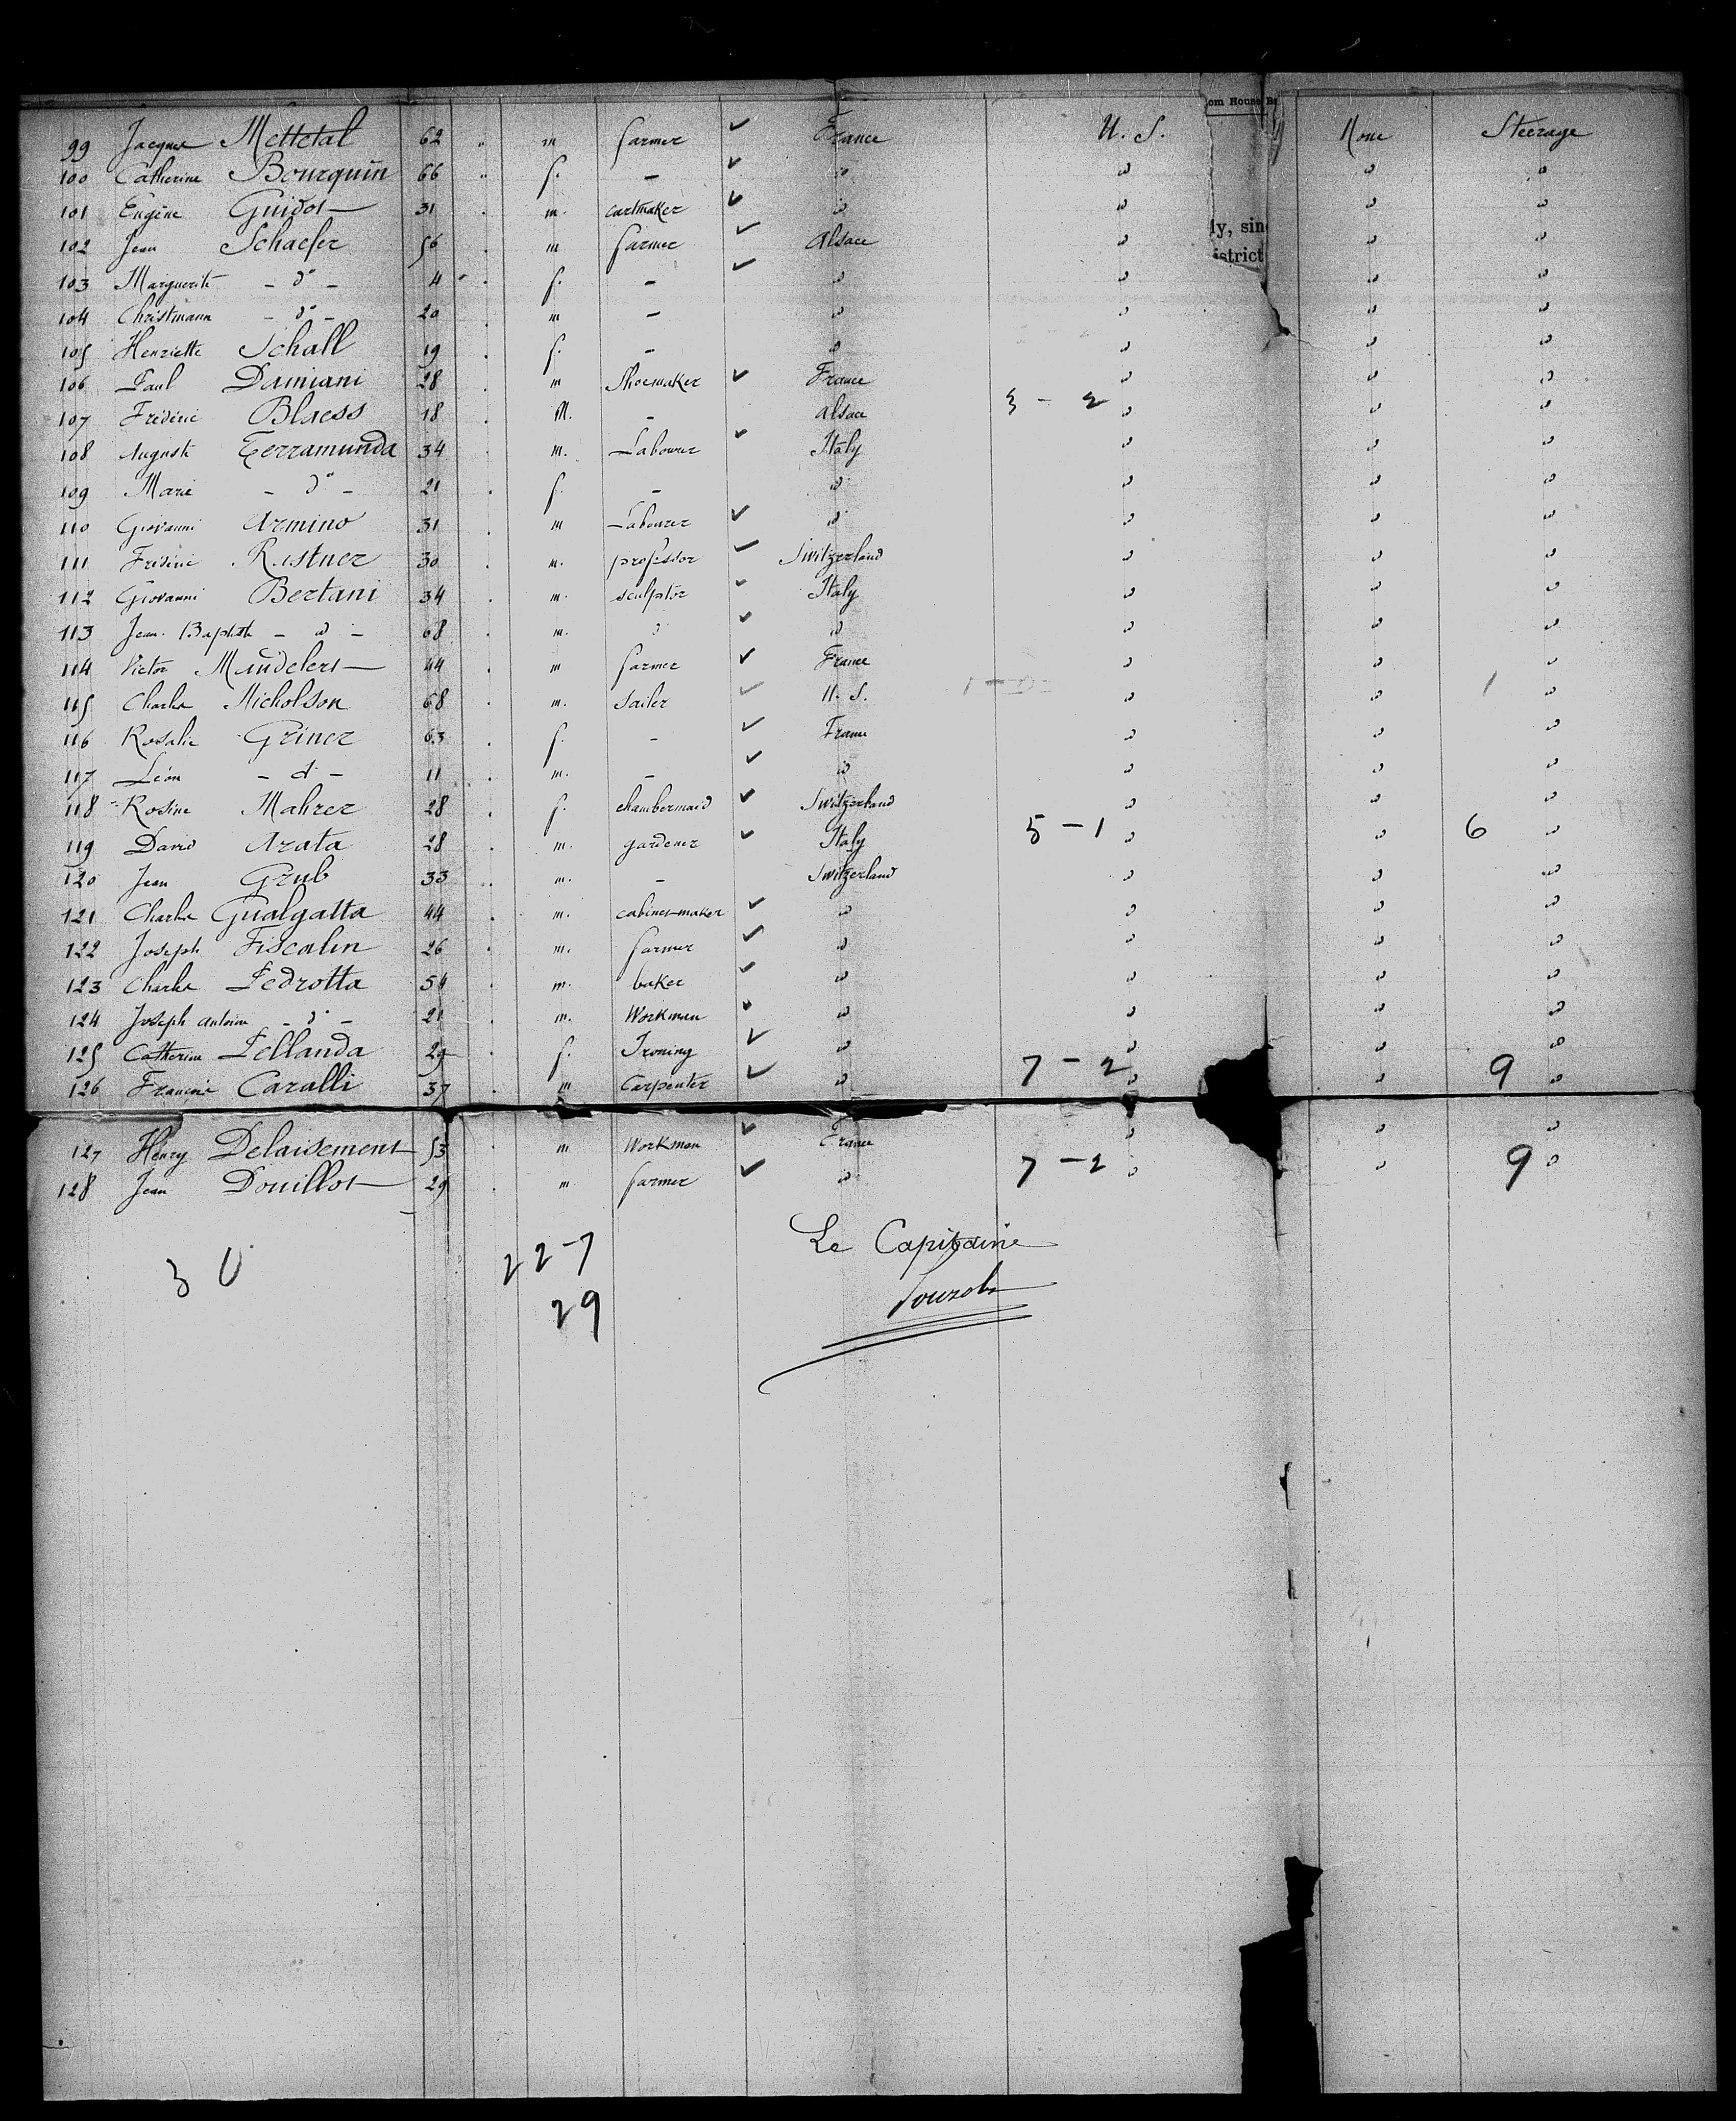 om House B
99 Jacques Mettetal 62 " m farmer ✓ France U. S. None Steerage
100 Catherine Bourquin 66 " f. – ✓ d° d° d° d°
101 Eugène Guidot 31 m. cartmaker ✓ d° d° d° d°
ly, sin
102 Jean Schaefer 56 m farmer ✓ Alsace d° d° d°
istrict
103 Marguerite – d° – 4 f. – ✓ d° d° d° d°
104 Christmann – d° – 20 m – d° d° d° d°
105 Henriette Schall 19 f. – d° d° d° d°
106 Paul Damiani 28 m Shoemaker ✓ France d° d° d°
107 Frédéric Blaess 18 M. – Alsace 3 – 2 d° d° d°
108 Auguste Terramunda 34 m. Labourer ✓ Italy d° d° d°
109 Marie – d° – 21 f. – d° d° d° d°
110 Giovanni Armino 31 m Labourer ✓ d° d° d° d°
111 Frédéric Ristner 30 m. professor ✓ Switzerland d° d° d°
112 Giovanni Bertani 34 m. sculptor ✓ Italy d° d° d°
113 Jean. Baptiste – d° – 68 m. d° ✓ d° d° d° d°
114 Victor 44 m farmer ✓ France d° d° d°
115 Charles Nicholson 68 m. Sailer ✓ U. S. d° d° 1 d°
116 Rosalie Griner 63 f. – ✓ France d° d° d°
117 Léon – d° – 11 m. – ✓ d° d° d° d°
118 Rosine Mahrer 28 f. chambermaid ✓ Switzerland d° d° d°
119 David Arata 28 m. gardener ✓ Italy 5 – 1 d° d° 6 d°
120 Jean Grub 33 m. – Switzerland d° d° d°
121 Charles Gualgatta 44 m. cabinet-maker ✓ d° d° d° d°
122 Joseph Fiscalin 26 m. farmer ✓ d° d° d° d°
123 Charles Pedrotta 54 m. baker ✓ d° d° d° d°
124 Joseph Antoine – d° – 21 m. Workman ✓ d° d° d° d°
125 Catherine Pellanda 29 f. Ironing ✓ d° d° d° d°
126 François Caralli 37 m Carpenter ✓ d° 7 – 2 d° d° 9 d°
127 Henry Delaisement 53 m Workman ✓ France d° d° d°
128 Jean Douillot 29 m farmer ✓ d° 7 – 2 d° d° 9 d°
30 22–7 Le Capitaine
29